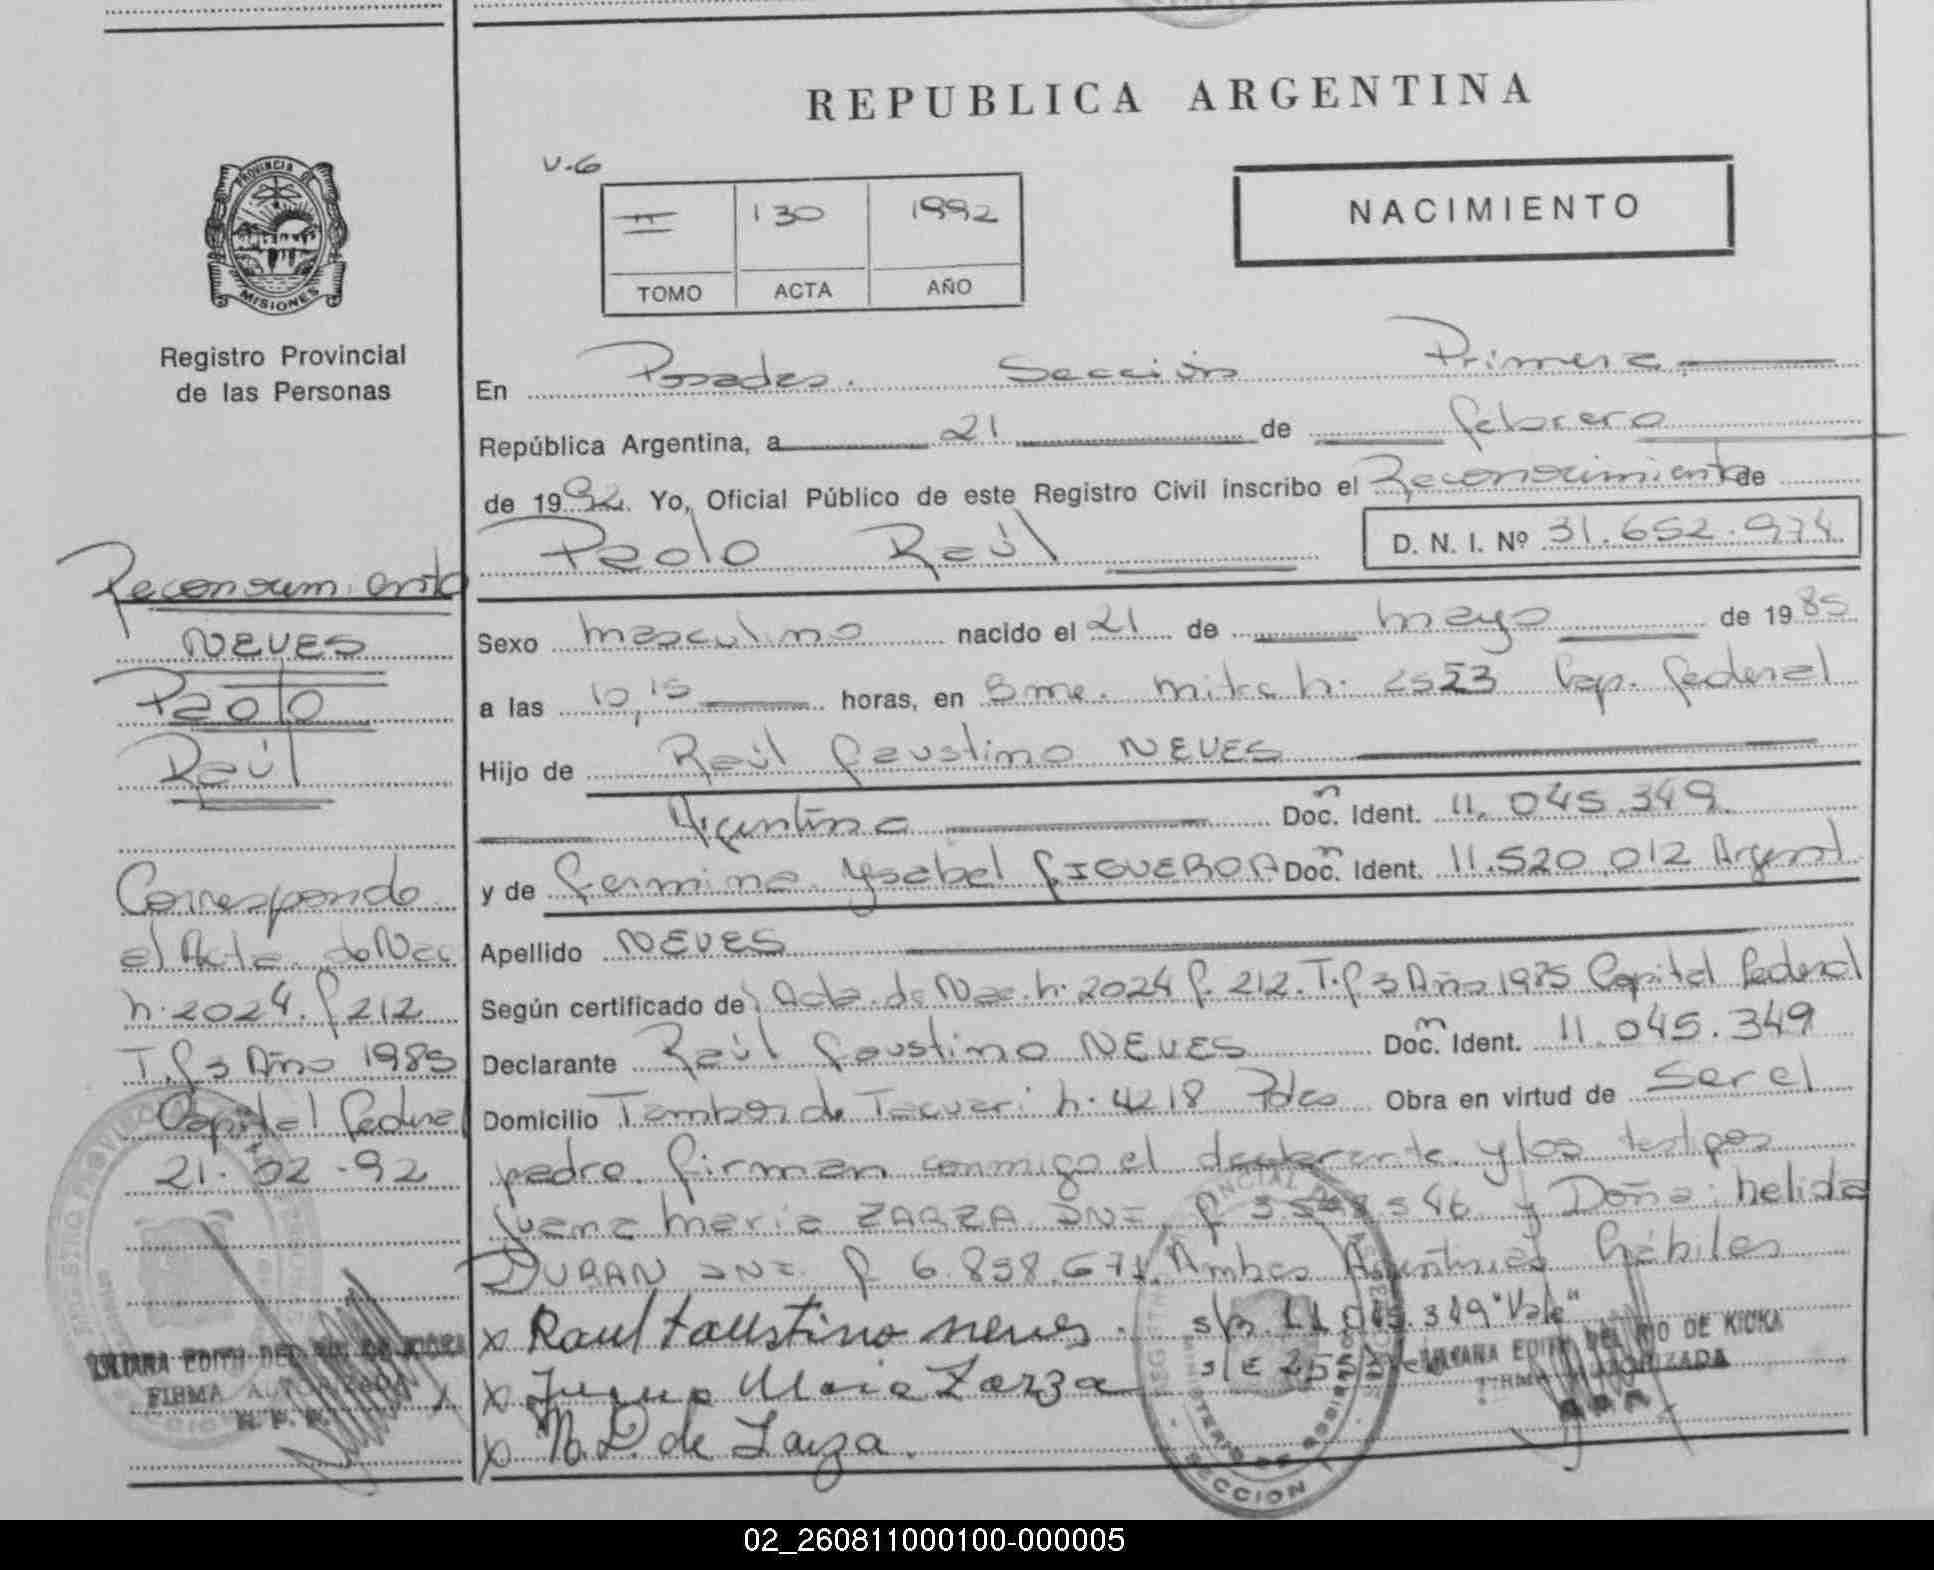 REPUBLICA ARGENTINA
V-6
II 130 1992
TOMO ACTA AÑO
NACIMIENTO
PROVINCIA DE
MISIONES
Registro Provincial
de las Personas
Reconocimiento
NEVES
Paolo
Raúl
Corresponde
al Acta de Nac
n. 2024. f 212
T. f 3 Año 1985
Capital Federal
21-02-92
LILIANA EDITH DEL RIO DE KICKA
FIRMA AUTORIZADA
R. P. P.
En Posadas. Sección Primera
República Argentina, a 21 de febrero
de 1992. Yo, Oficial Público de este Registro Civil inscribo el Reconocimiento de
Paolo Raúl D. N. I. Nº 31.652.974
Sexo masculino nacido el 21 de mayo de 1985
a las 10,15 horas, en Bme. Mitre n. 2553 Cap. Federal
Hijo de Raúl Faustino NEVES
Argentino Doc. Ident. 11.045.349
y de Fermina Ysabel FIGUEROA Doc. Ident. 11.520.012 Argent.
Apellido NEVES
Según certificado de Acta de Nac. n. 2024 f. 212. T. f 3 Año 1985 Capital Federal
Declarante Raúl Faustino NEVES Doc. Ident. 11.045.349
Domicilio Tambor de Tacuari n. 4218 Pdas Obra en virtud de Ser el
padre. Firman conmigo el declarante y los testigos
Juana Maria ZARZA DNI. F y Doña: Nelida
DURAN DNI. F 6.858.671. Ambas Argentinas Hábiles
x Raul Faustino neves. s/r. 11.045.349 "Vale"
x Juana Maria Zarza s/E 2553
x N. D. de Zarza.
LILIANA EDITH DEL RIO DE KICKA
FIRMA AUTORIZADA
R. P. P.
SECCION 1
02_260811000100-000005